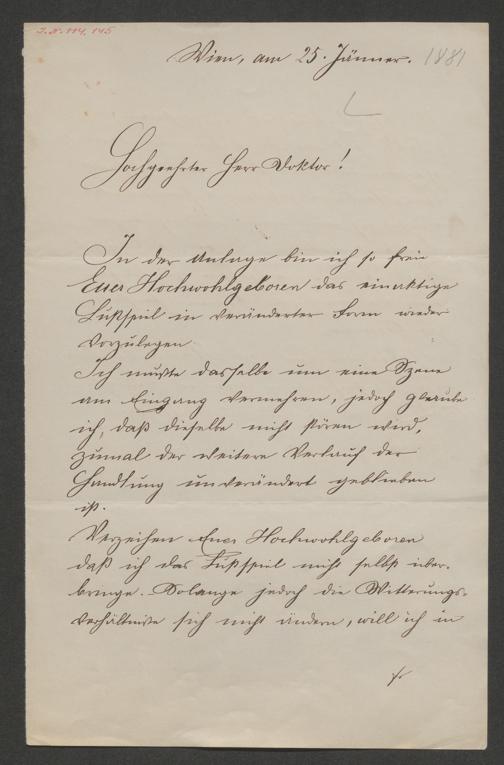 J. N. 114.145
Wien, am 25. Jänner. 1881
Hochgeehrter Herr Doktor!
In der Anlage bin ich so frei
Euer Hochwohlgeboren das einaktige
Lustspiel in veränderter Form wieder
vorzulegen.
Ich mußte dasselbe um eine Szene
am Eingang vermehren, jedoch glaube
ich, daß dieselbe nicht stören wird,
zumal der weitere Verlauf der
Handlung unverändert geblieben
ist.
Verzeihen Euer Hochwohlgeboren
daß ich das Lustspiel nicht selbst über-
bringe. Solange jedoch die Witterungs-
verhältnisse sich nicht ändern, will ich in